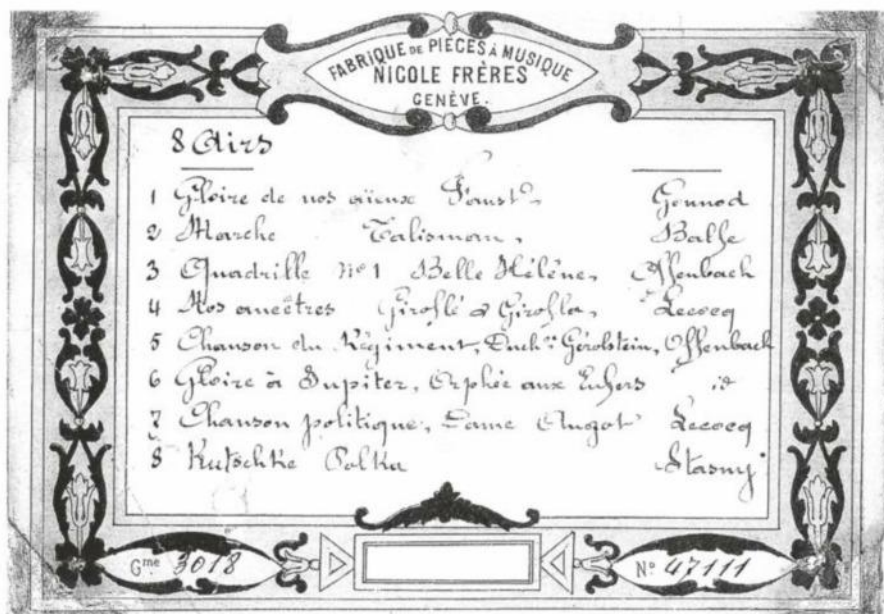 FABRIQUE DE PIÈCES À MUSIQUE
NICOLE FRÈRES
GENÈVE.
8 Airs
1 Gloire de nos aïeux Faust, Gounod
2 Marche Talisman, Balfe
3 Quadrille No 1 Belle Hélène, Offenbach
4 Nos ancêtres Giroflé & Girofla, Lecocq
5 Chanson du Régiment, Duchsse Gérolstein, Offenbach
6 Gloire à Jupiter, Orphée aux Enfers id
7 Chanson politique, Dame Angot Lecocq
8 Kutschke Polka Stasny
Gme 3018
No 47111